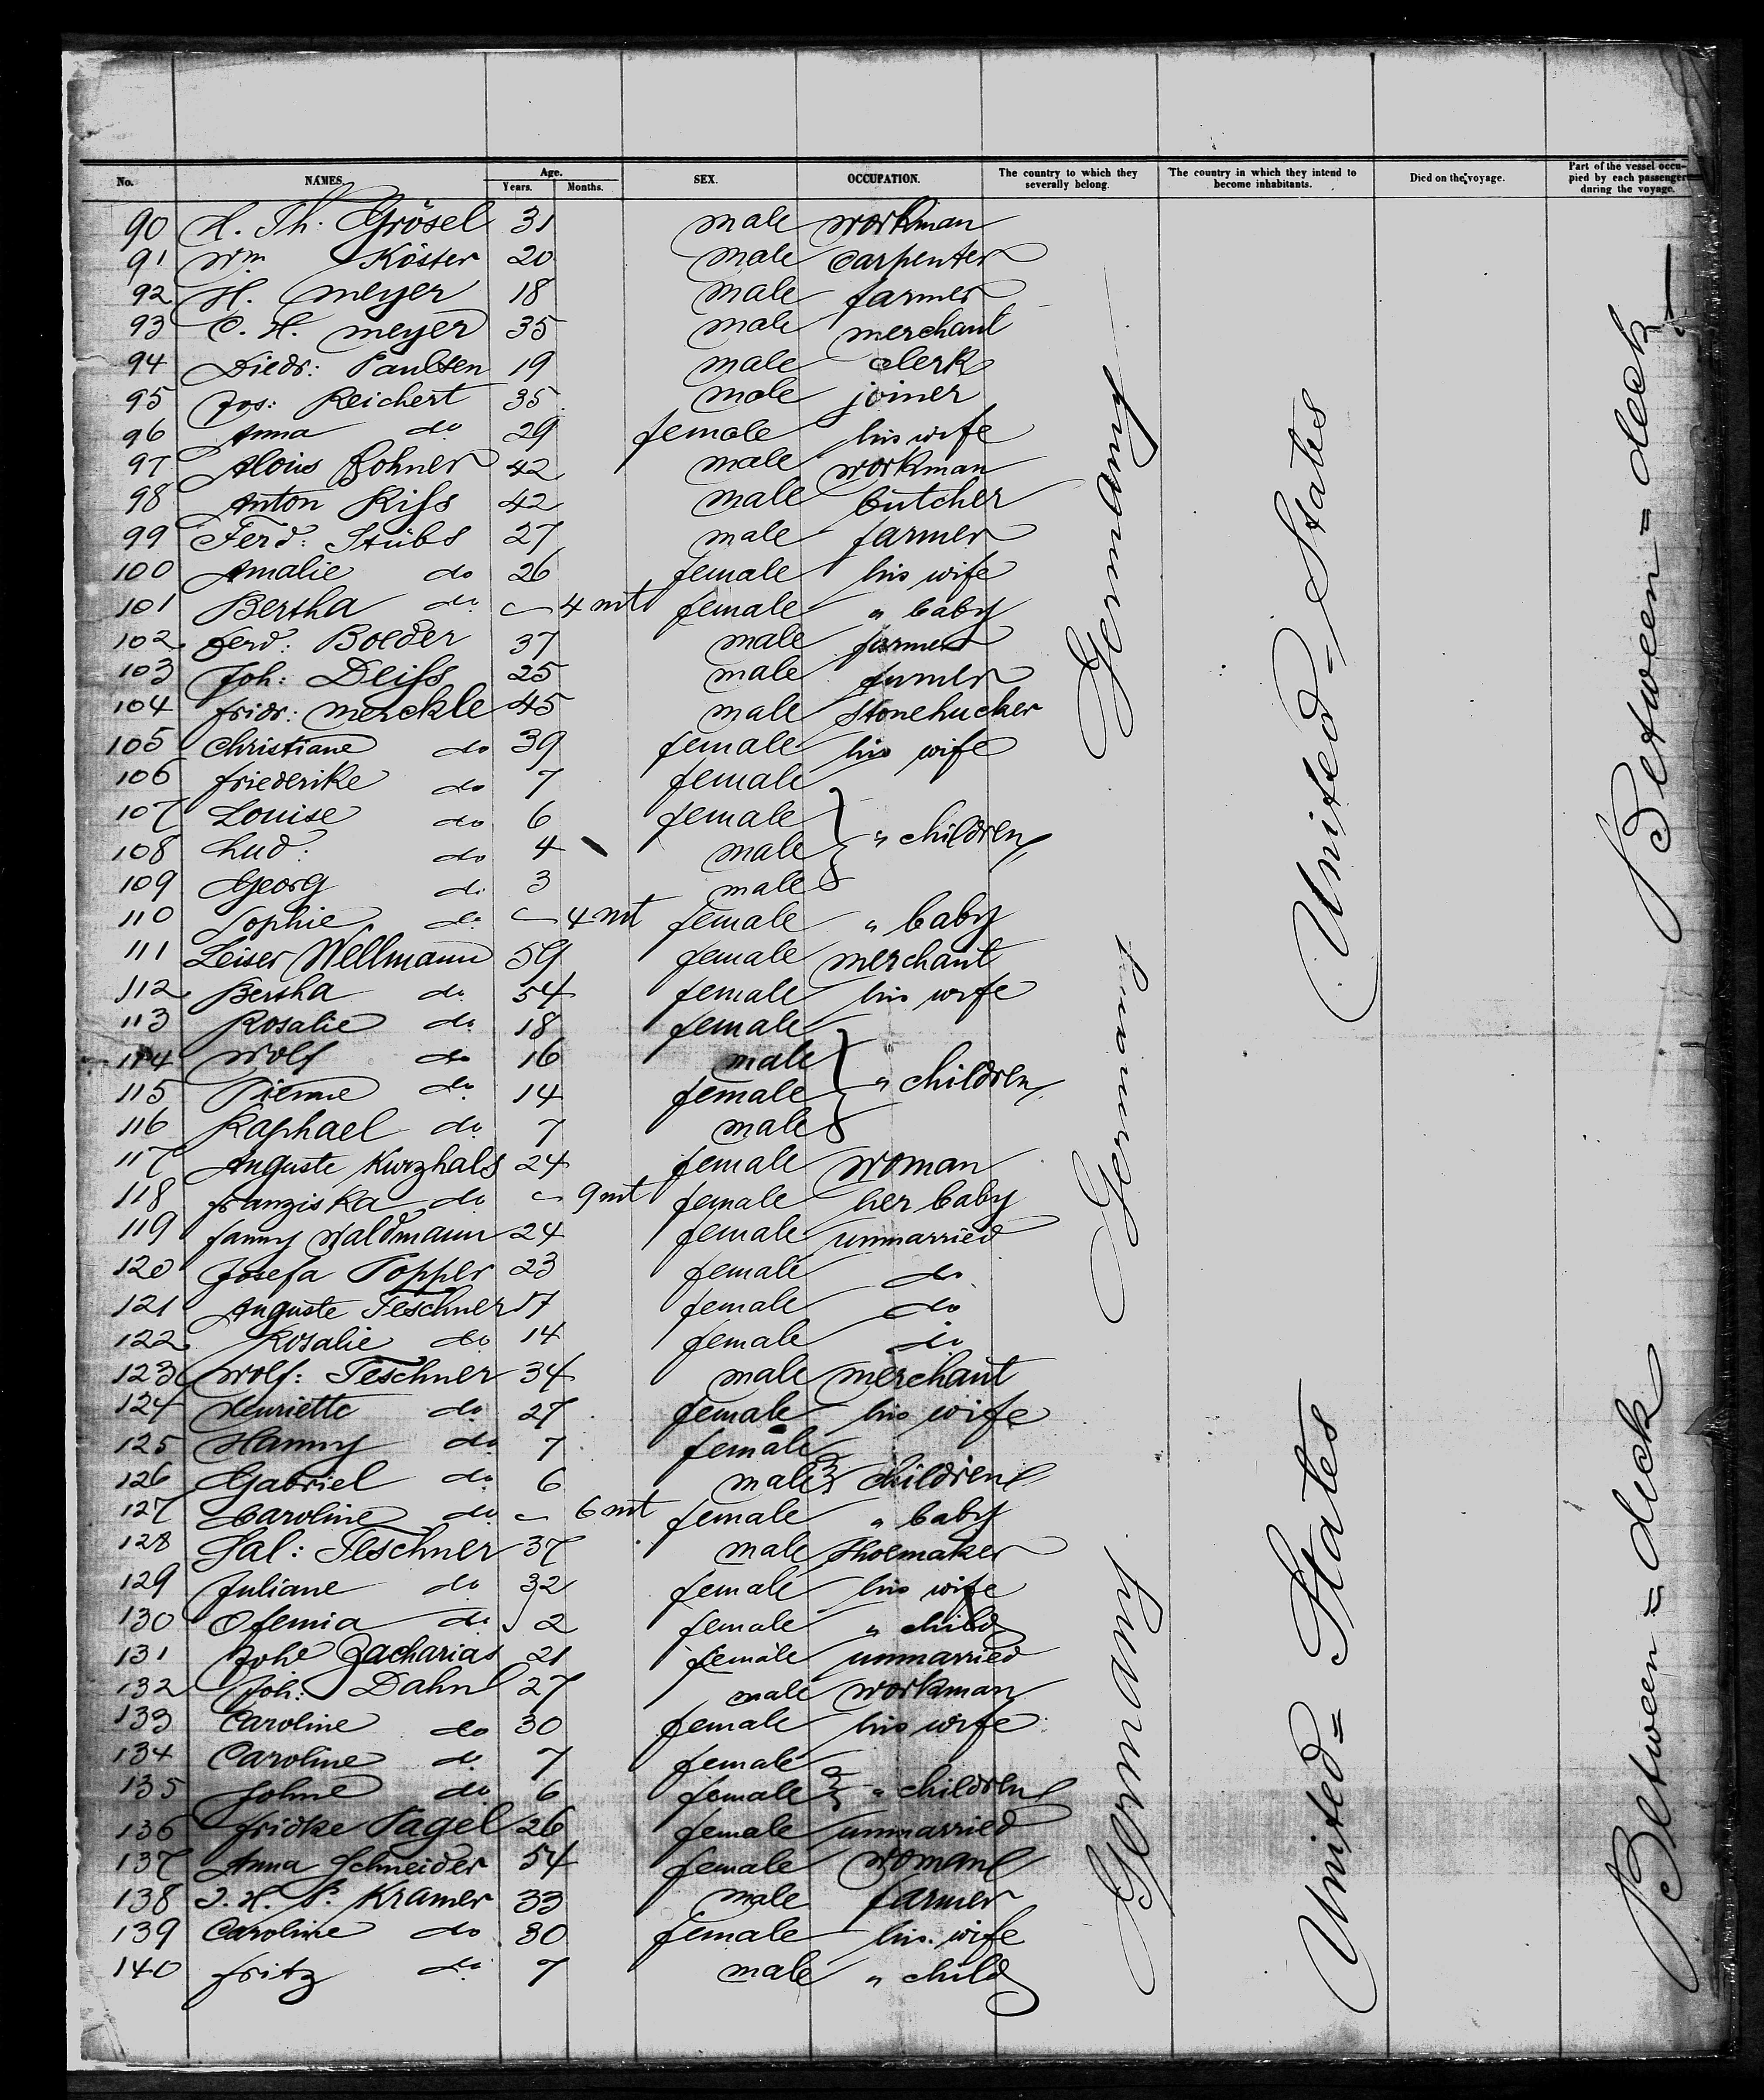 No. NAMES. Age. Years. Months. SEX. OCCUPATION. The country to which they severally belong. The country in which they intend to become inhabitants. Died on the voyage. Part of the vessel occupied by each passenger during the voyage.
90 H. Th. Grösel 31 male workman
91 Wm Köster 20 male carpenter
92 H. Meyer 18 male farmer
93 C. H. Meyer 35 male merchant
94 Diedr: Paulsen 19 male clerk
95 Jos: Reichert 35 male joiner
96 Anna do 29 female his wife
97 Alois Bohner 42 male workman
98 Anton Kiss 42 male butcher
99 Ferd: Stübs 27 male farmer
100 Amalie do 26 female his wife
101 Bertha do — 4 mt female " baby
102 Ferd: Boeder 37 male farmer
103 Joh: Deiss 25 male farmer
104 Fridr: Merckle 45 male Stonehucker
105 Christiane do 39 female his wife
106 Friederike do 7 female
107 Louise do 6 female
108 Lud: do 4 male " children
109 Georg do 3 male
110 Sophie do — 4 mt female " baby
111 Leiser Wellmann 59 female merchant
112 Bertha do 54 female his wife
113 Rosalie do 18 female
114 Wolf do 16 male
115 do 14 female " children
116 Raphael do 7 male
117 Auguste Kurzhals 24 female woman
118 Franziska do — 9 mt female her baby
119 Fanny Waldmann 24 female unmarried
120 Josefa Popper 23 female do
121 Auguste Teschner 17 female do
122 Rosalie do 14 female do
123 Wolf: Teschner 34 male merchant
124 Henriette do 27 female his wife
125 Hanny do 7 female
126 Gabriel do 6 male children
127 Caroline do — 6 mt female " baby
128 Sal: Teschner 37 male Shoemaker
129 Juliane do 32 female his wife
130 Ofemia do 2 female " child
131 Johe Zacharias 21 female unmarried
132 Joh: Dahn 27 male workman
133 Caroline do 30 female his wife
134 Caroline do 7 female
135 Johne do 6 female " children
136 Fridke Pagel 26 female unmarried
137 Anna Schneider 54 female woman
138 J. H. P. Kramer 33 male farmer
139 Caroline do 30 female his wife
140 Fritz do 7 male " child
Germany
Germany
Germany
United = States
United = States
Between = deck
Between = deck